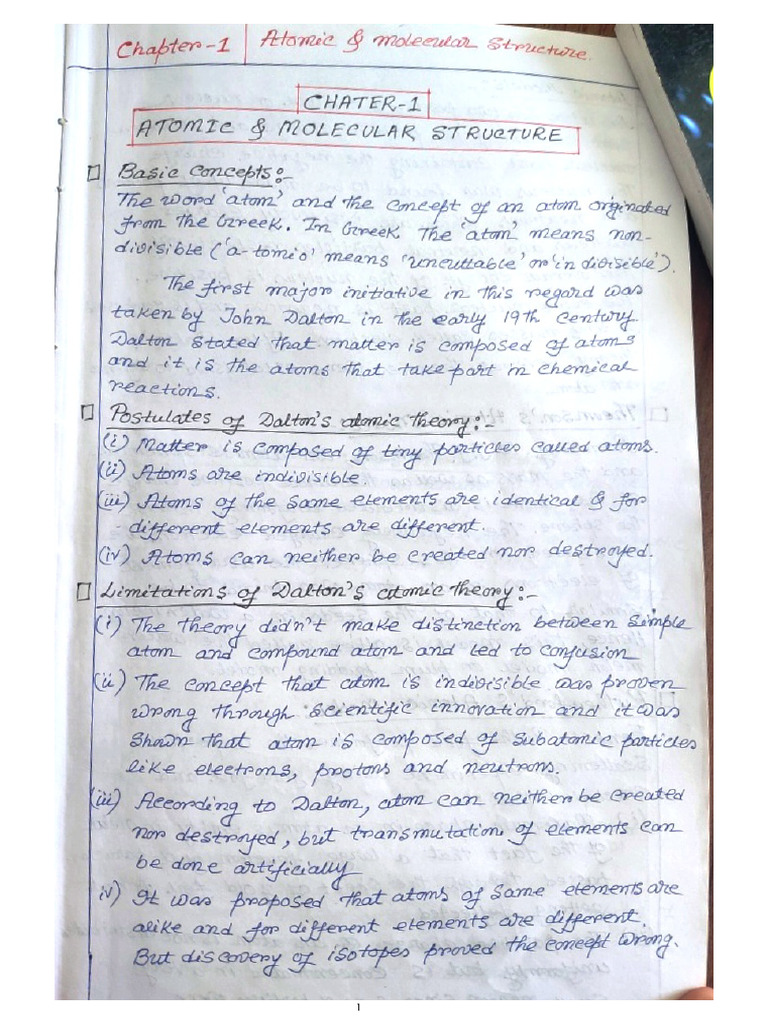 Chapter-1 Atomic & molecular structure.
CHATER-1
ATOMIC & MOLECULAR STRUCTURE
Basic Concepts:-
The word 'atom' and the concept of an atom originated
from the Greek. In Greek the 'atom' means non-
divisible ('a-tomio' means 'uncuttable' or 'in divisible').
The first major initiative in this regard was
taken by John Dalton in the early 19th century.
Dalton stated that matter is composed of atoms
and it is the atoms that take part in chemical
reactions.
Postulates of Dalton's atomic theory:-
(i) Matter is composed of tiny particles called atoms.
(ii) Atoms are indivisible.
(iii) Atoms of the same elements are identical & for
different elements are different.
(iv) Atoms can neither be created nor destroyed.
Limitations of Dalton's atomic theory:-
(i) The theory didn't make distinction between simple
atom and compound atom and led to confusion
(ii) The concept that atom is indivisible was proven
wrong through scientific innovation and it was
shown that atom is composed of subatomic particles
like electrons, protons and neutrons.
(iii) According to Dalton, atom can neither be created
nor destroyed, but transmutation of elements can
be done artificially
iv) It was proposed that atoms of same elements are
alike and for different elements are different.
But discovery of isotopes proved the concept wrong.
1